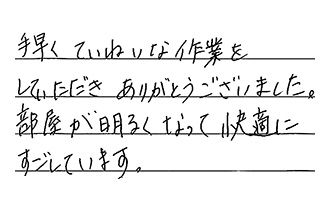 手早く ていねいな作業を
していただき ありがとうございました。
部屋が明るくなって 快適に
すごしています。